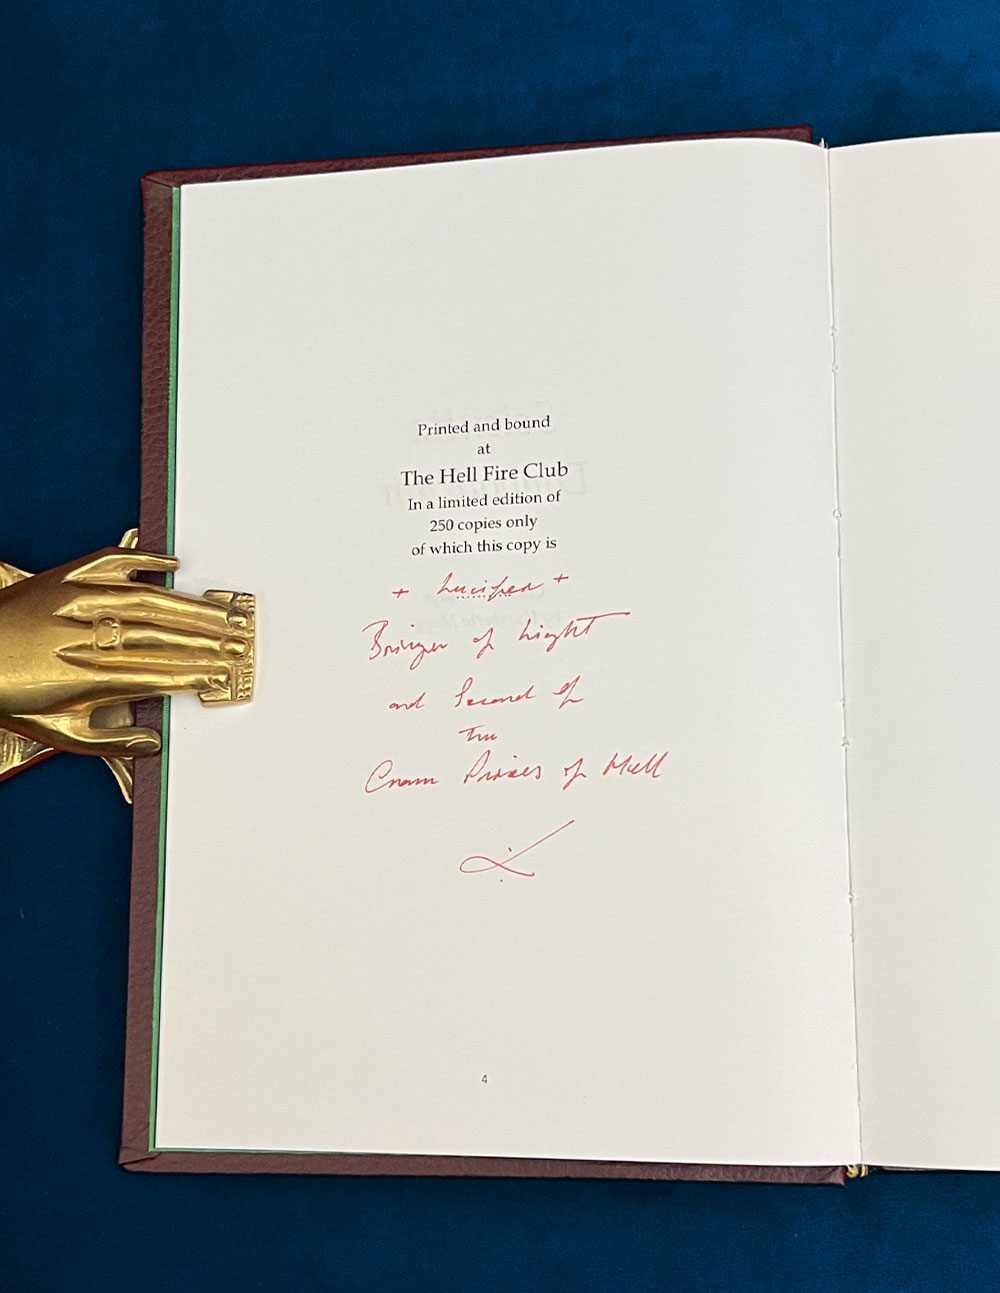 Printed and bound
at
The Hell Fire Club
In a limited edition of
250 copies only
of which this copy is
+ Lucifer +
Bringer of Light
and Second of
The
Crown Princes of Hell
4